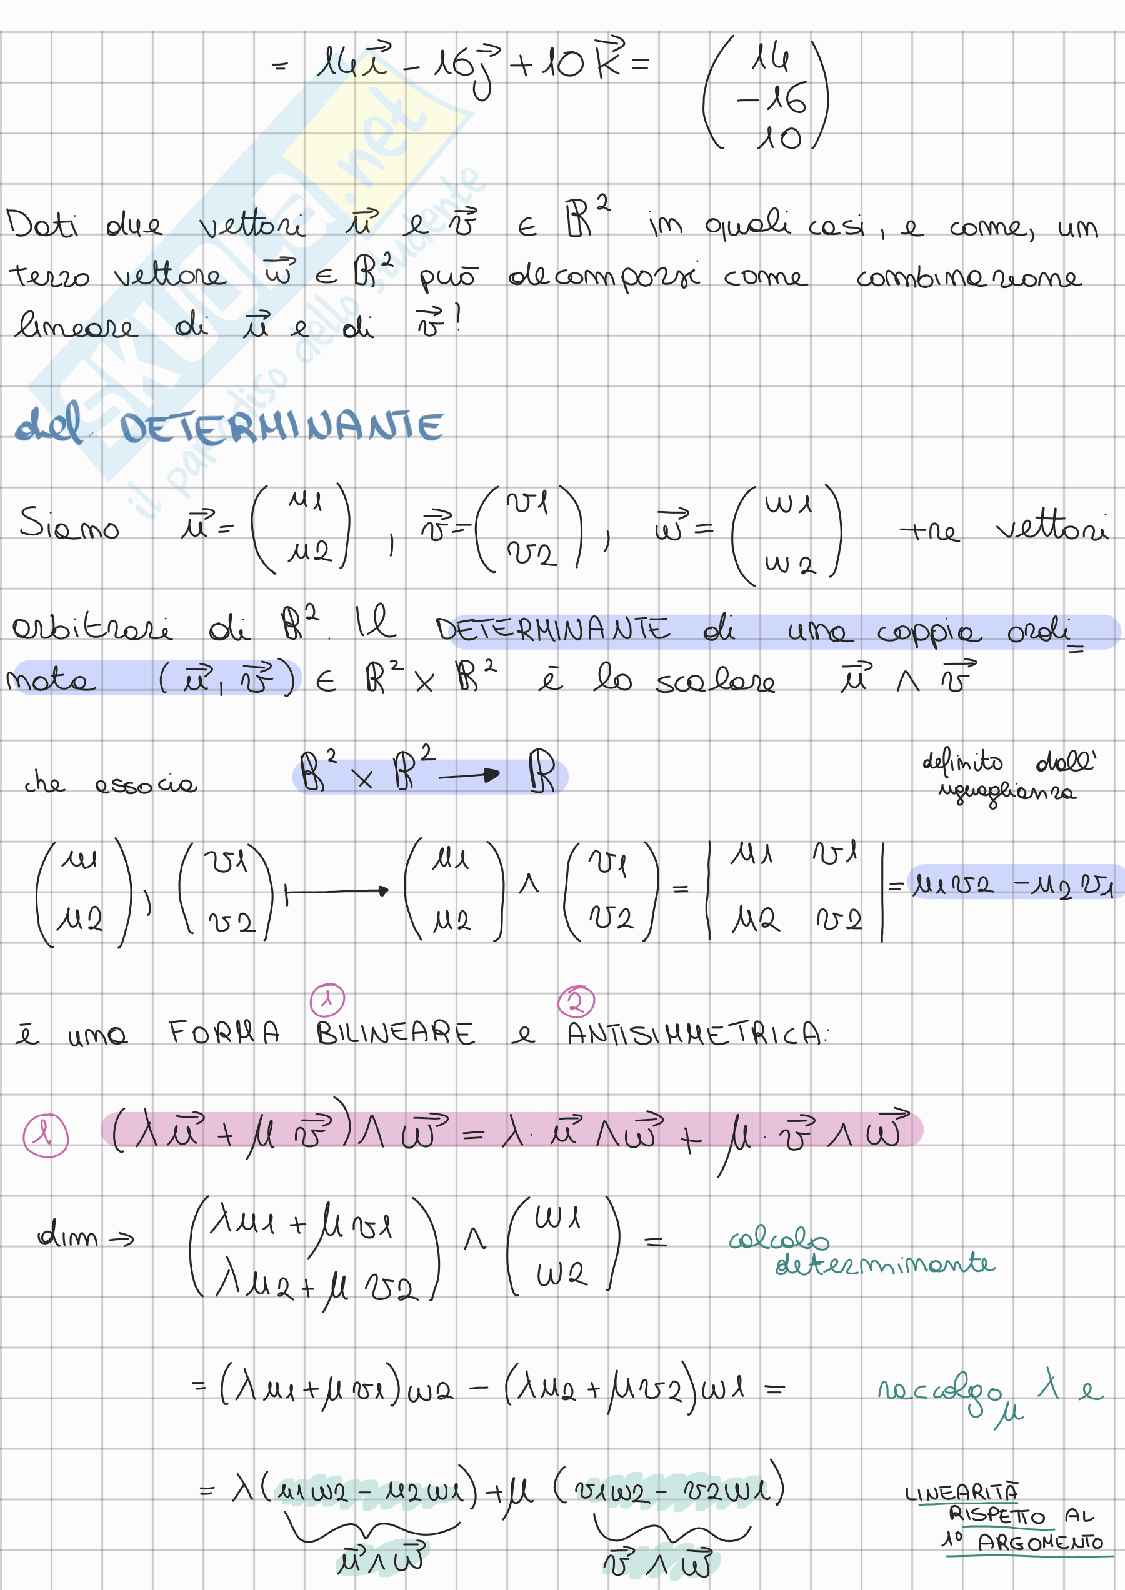 = 14i⃗ - 16j⃗ + 10k⃗ = (14 -16 10)
Dati due vettori u⃗ e v⃗ ∈ ℝ² in quali casi, e come, un
terzo vettore w⃗ ∈ ℝ² può decomporsi come combinazione
lineare di u⃗ e di v⃗!
skuola.net
il paradiso dello studente
def. DETERMINANTE
Siano u⃗ = (u1 u2), v⃗ = (v1 v2), w⃗ = (w1 w2) tre vettori
arbitrari di ℝ². Il DETERMINANTE di una coppia ordi=
nata (u⃗, v⃗) ∈ ℝ² × ℝ² è lo scalare u⃗ ∧ v⃗
che associa ℝ² × ℝ² → ℝ definito dall'
uguaglianza
(u1 u2), (v1 v2) ↦ (u1 u2) ∧ (v1 v2) = |u1 v1 u2 v2| = u1v2 - u2v1
è una FORMA ① BILINEARE e ② ANTISIMMETRICA:
① (λu⃗ + μv⃗) ∧ w⃗ = λ· u⃗ ∧ w⃗ + μ· v⃗ ∧ w⃗
dim → (λu1 + μv1 λu2 + μv2) ∧ (w1 w2) = calcolo
determinante
= (λu1 + μv1)w2 - (λu2 + μv2)w1 = raccolgo λ e
μ
= λ(u1w2 - u2w1) + μ(v1w2 - v2w1)
u⃗ ∧ w⃗ v⃗ ∧ w⃗
LINEARITÀ
RISPETTO AL
1° ARGOMENTO